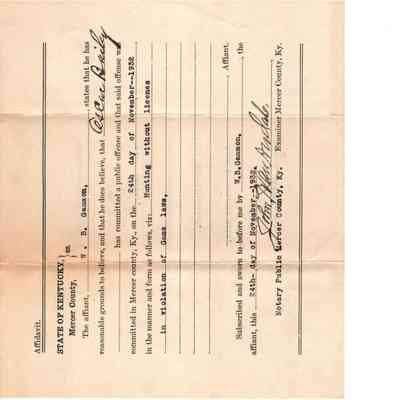 Affidavit.
STATE OF KENTUCKY, } ss.
Mercer County,
The affiant, W. D. Gammon, , states that he has
reasonable grounds to believe, and that he does believe, that Oscar Baily
has committed a public offence and that said offense w
committed in Mercer county, Ky., on the 24th day of November--1932
in the manner and form as follows, viz: Hunting without licenes
in violation of Game laws,
, Affiant.
Subscribed and sworn to before me by W.D.Gammon. , the
affiant, this 24th- day of November--1932.
Examiner Mercer County, Ky.
Notary Public Mercer County, Ky.